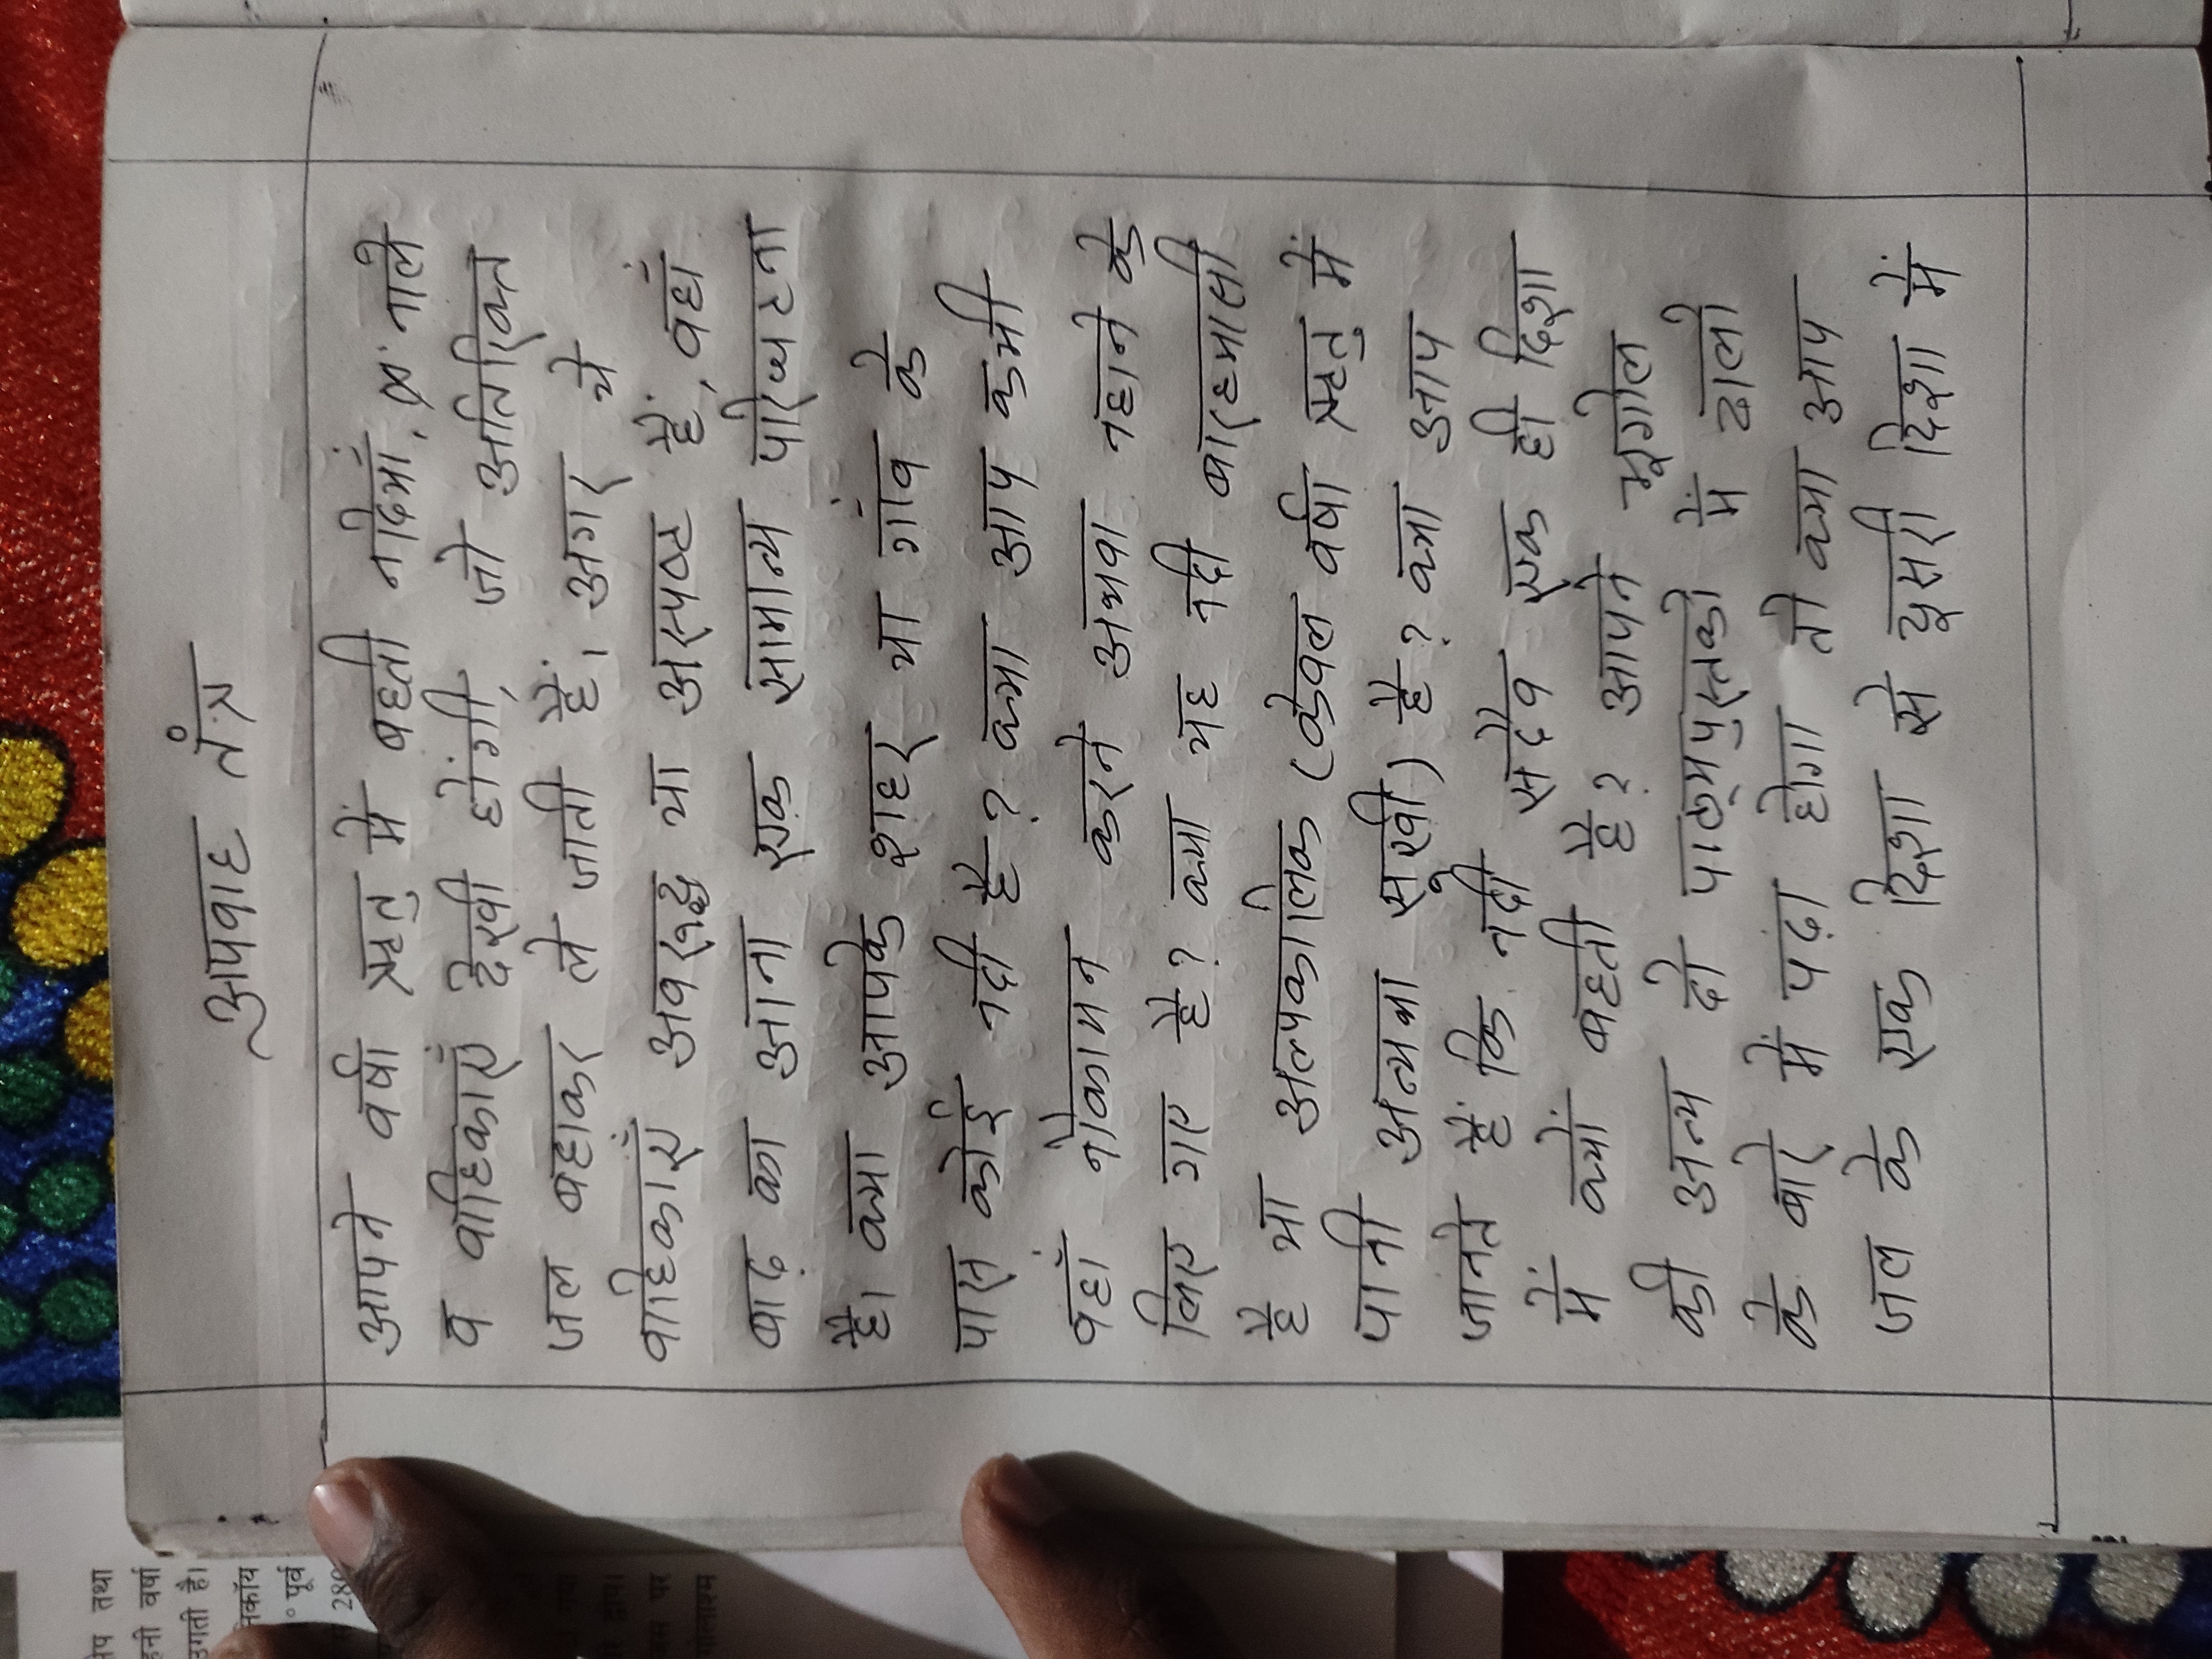 अपवाह तंत्र
आपने वर्षा ऋतु में बहती नदियाँ, नाले
व वाहिकाएँ देखी होंगी, जो अतिरिक्त
जल बहाकर ले जाती हैं। अगर ये
वाहिकाएँ अवरुद्ध या अस्पष्ट हैं, वहाँ
बाढ़ का आना एक सामान्य परिघटना
है। क्या आपके शहर या गाँव के
पास कोई नदी है? क्या आप कभी
वहाँ नौकायन करने अथवा नहाने के
लिए गए है? क्या यह नदी बारहमासी
है या अल्पकालिक (केवल वर्षा ऋतु में
पानी अन्यथा सूखी) है? क्या आप
जानते हैं कि नदी सदैव एक ही दिशा
में क्यों बहती है? आपने भूगोल
की अन्य दो पाठ्यपुस्तकों में ढालो
के बारे में पढ़ा होगा तो क्या आप
जल के एक दिशा से दूसरी दिशा में
तथा
वर्षा
उगती है।
पूर्व